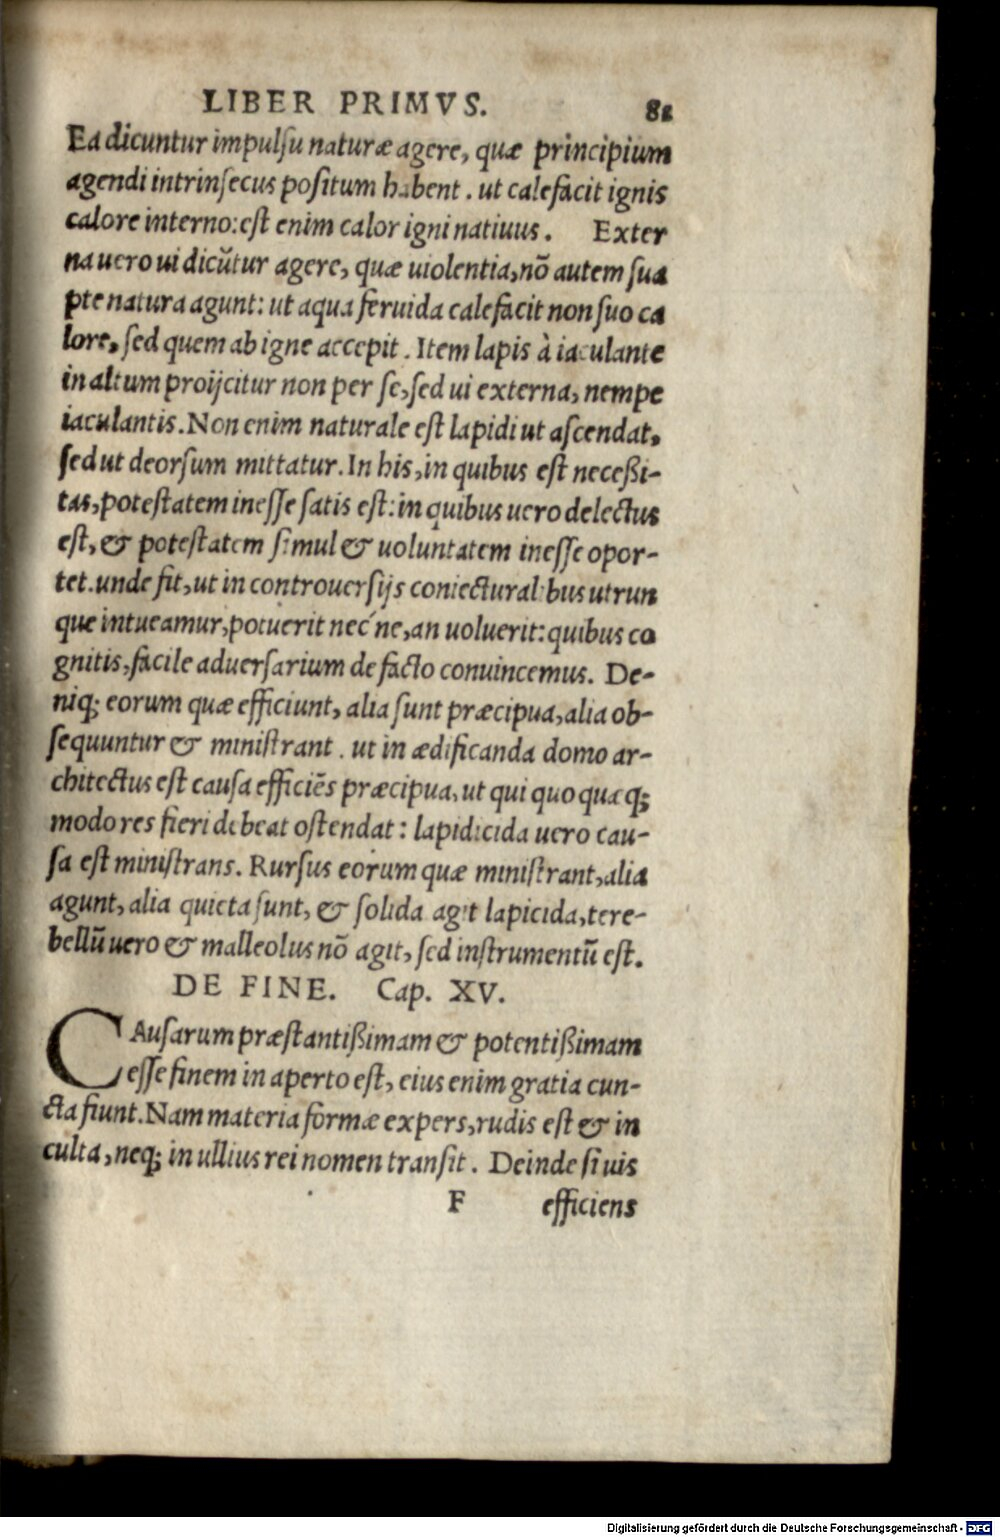 LIBER PRIMVS. 81
Ea dicuntur impulſu naturæ agere, quæ principium
agendi intrinſecus poſitum habent. ut calefacit ignis
calore interno: eſt enim calor igni natiuus. Exter
na uero ui dicūtur agere, quæ uiolentia, nō autem ſua
pte natura agunt: ut aqua feruida calefacit non ſuo ca
lore, ſed quem ab igne accepit. Item lapis à iaculante
in altum proijcitur non per ſe, ſed ui externa, nempe
iaculantis. Non enim naturale eſt lapidi ut aſcendat,
ſed ut deorſum mittatur. In his, in quibus eſt neceßi-
tas, poteſtatem ineſſe ſatis eſt: in quibus uero delectus
eſt, & poteſtatem ſimul & uoluntatem ineſſe opor-
tet. unde fit, ut in controuerſijs coniecturalibus utrun
que intueamur, potuerit nec´ne, an uoluerit: quibus co
gnitis, facile aduerſarium de facto conuincemus. De-
niq; eorum quæ efficiunt, alia ſunt præcipua, alia ob-
ſequuntur & miniſtrant. ut in ædificanda domo ar-
chitectus eſt cauſa efficiēs præcipua, ut qui quo quæq;
modo res fieri debeat oſtendat: lapidicida uero cau-
ſa eſt miniſtrans. Rurſus eorum quæ miniſtrant, alia
agunt, alia quieta ſunt, & ſolida agit lapicida, tere-
bellū uero & malleolus nō agit, ſed inſtrumentū eſt.
DE FINE. Cap. XV.
CAuſarum præſtantißimam & potentißimam
eſſe finem in aperto eſt, eius enim gratia cun-
cta fiunt. Nam materia formæ expers, rudis eſt & in
culta, neq; in ullius rei nomen tranſit. Deinde ſi uis
F efficiens
Digitalisierung gefördert durch die Deutsche Forschungsgemeinschaft - DFG